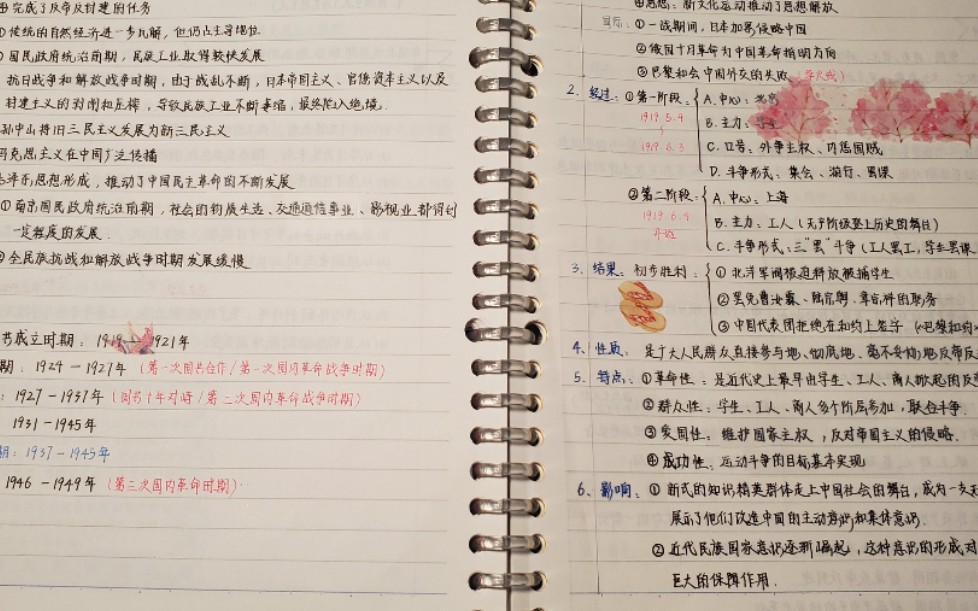 完成了反帝反封建的任务
①传统的自然经济进一步瓦解，但仍占主导地位
②国民政府统治前期，民族工业取得较快发展
抗日战争和解放战争时期，由于战乱不断，日本帝国主义、官僚资本主义以及
封建主义的剥削和压榨，导致民族工业不断萎缩，最终陷入绝境。
孙中山将旧三民主义发展为新三民主义
马克思主义在中国广泛传播
毛泽东思想形成，推动了中国民主革命的不断发展
①南京国民政府统治前期，社会的物质生活、交通通信事业、影视业都得到
一定程度的发展.
②全民族抗战和解放战争时期发展缓慢
成立时期：1919-1921年
期：1924-1927年（第一次国共合作/第一次国内革命战争时期）
：1927-1937年（国共十年对峙/第二次国内革命战争时期）
1931-1945年
期：1937-1945年
1946-1949年（第三次国内革命时期）
④思想：新文化运动推动了思想解放
国际：①一战期间，日本加紧侵略中国
②俄国十月革命为中国革命指明方向
③巴黎和会中国外交的失败（导火线）
2. 经过：①第一阶段：A. 中心：北京
1919.5.4
B. 主力：学生
1919.6.3
C. 口号：外争主权、内惩国贼
D. 斗争形式：集会、游行、罢课
②第二阶段：A. 中心：上海
1919.6.4
开始
B. 主力：工人（无产阶级登上历史的舞台）
C. 斗争形式：三"罢"斗争（工人罢工，学生罢课
3. 结果：初步胜利：①北洋军阀被迫释放被捕学生
②罢免曹汝霖、陆宗舆、章宗祥的职务
③中国代表团拒绝在和约上签字（《巴黎和约》
4. 性质：是广大人民群众直接参与地、彻底地、毫不妥协地反帝反
5. 特点：①革命性：是近代史上最早由学生、工人、商人掀起的反
②群众性：学生、工人、商人各个阶层参加，联合斗争.
③爱国性：维护国家主权，反对帝国主义的侵略.
④成功性：运动斗争的目标基本实现
6. 影响：①新式的知识精英群体走上中国社会的舞台，成为一支
展示了他们改造中国的主动意识和集体意识.
②近代民族国家意识逐渐崛起，这种意识的形成对
巨大的保障作用.